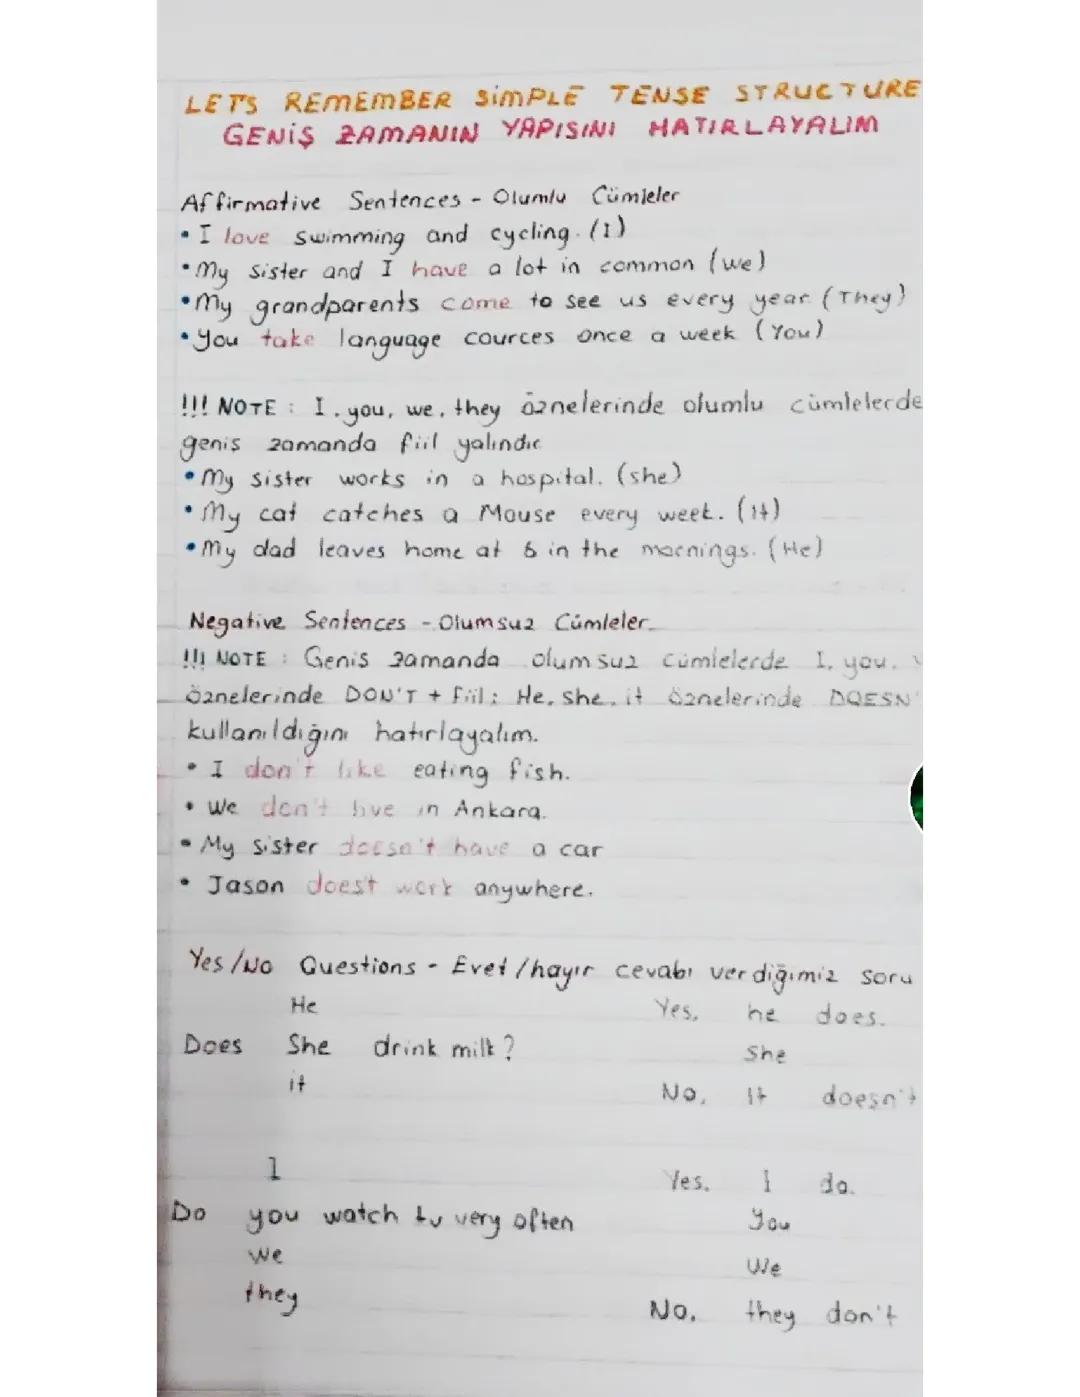 LETS REMEMBER SİMPLE TENSE STRUCTURE
GENİŞ ZAMANIN YAPISINI HATIRLAYALIM
Affirmative Sentences - Olumlu Cümleler
• I love swimming and cycling. (I)
• My sister and I have a lot in common (we)
• My grandparents come to see us every year (They)
• You take language cources once a week (You)
!!! NOTE : I, you, we, they öznelerinde olumlu cümlelerde
geniş zamanda fiil yalındır
• My sister works in a hospital. (she)
• My cat catches a Mouse every week. (It)
• My dad leaves home at 6 in the mornings. (He)
Negative Sentences - Olumsuz Cümleler
!!! NOTE : Geniş zamanda olumsuz cümlelerde I, you,
öznelerinde DON'T + fiil; He, she, it öznelerinde DOESN'
kullanıldığını hatırlayalım.
• I don't like eating fish.
• We don't live in Ankara.
• My sister doesn't have a car
• Jason does't work anywhere.
Yes/No Questions - Evet/hayır cevabı verdiğimiz soru
He Yes, he does.
Does She drink milk? She
it No, It doesn't
I Yes, I do.
Do you watch tv very often You
We We
they No, they don't